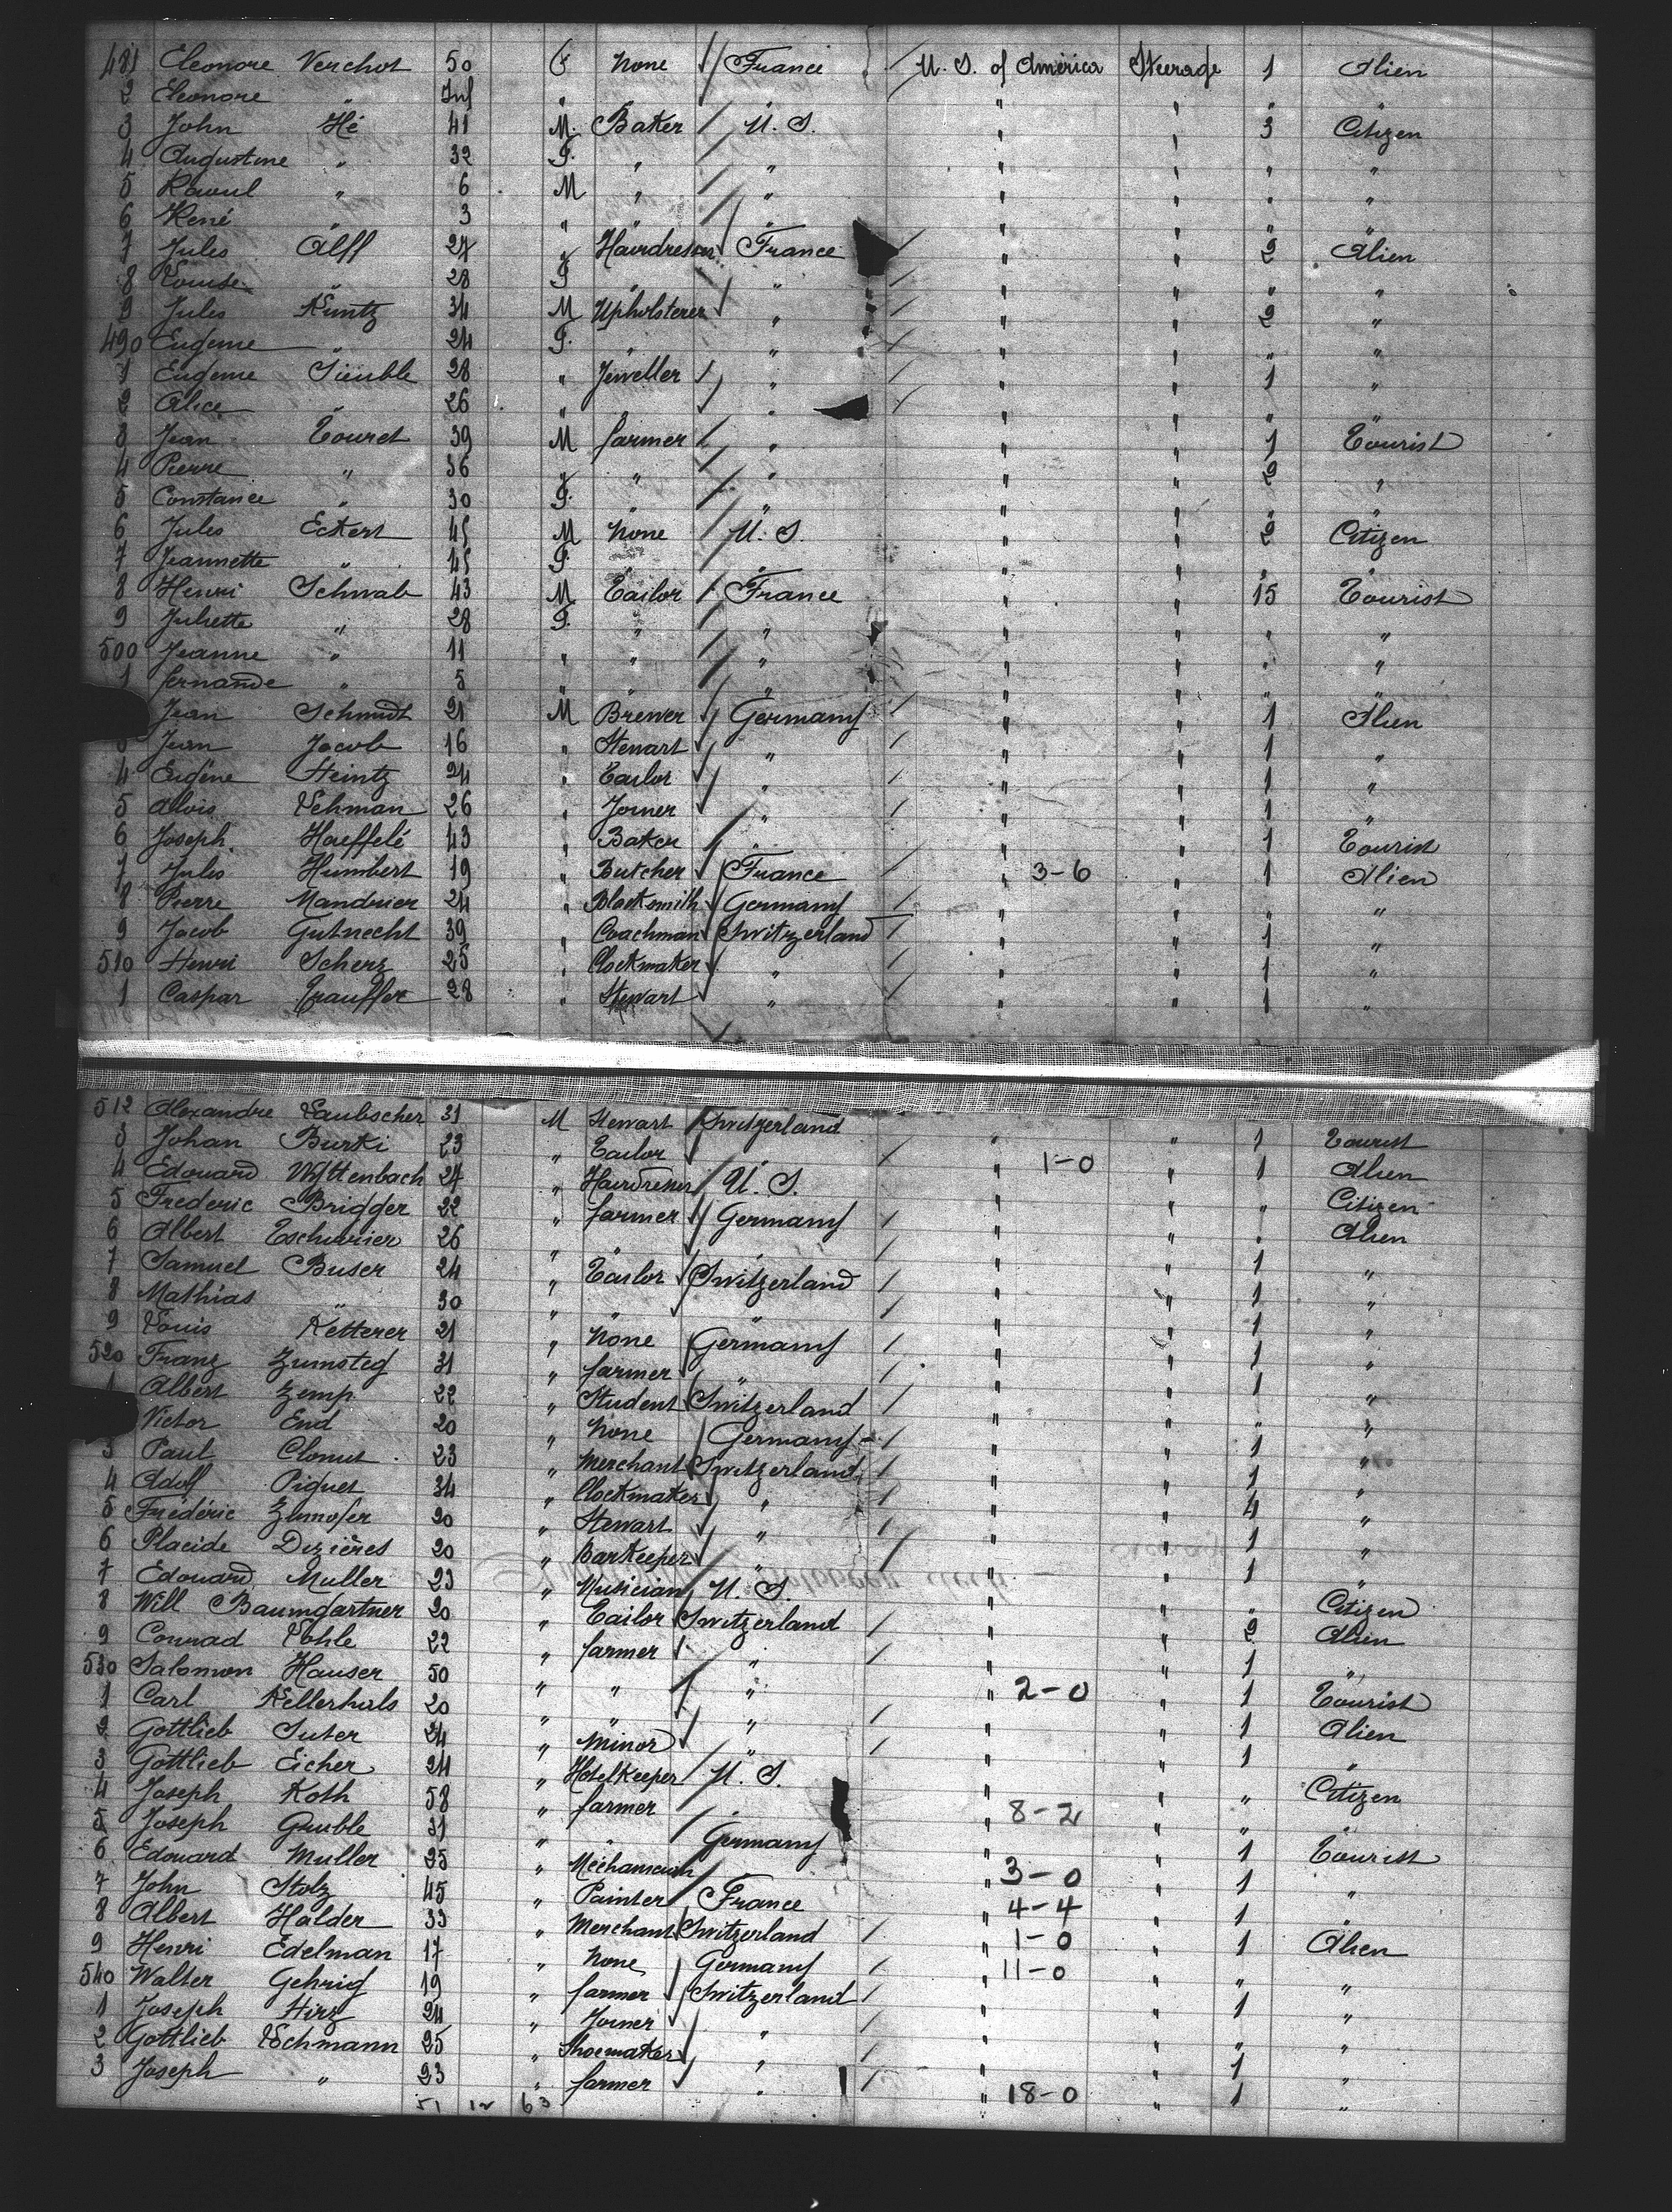 481 Eleonore Verchot 50 F None France U. S. of America Steerage 1 Alien
2 Eleonore " Inf " " " " " " "
3 John Hé 41 M. Baker U. S. " " 3 Citizen
4 Augustine " 32 F. " " " " " "
5 Raoul " 6 M " " " " " "
6 René " 3 " " " " " " "
7 Jules Alff 27 " Hairdresser France " " 2 Alien
8 Louise " 28 F " " " " " "
9 Jules Kuntz 34 M Upholsterer " " " 2 "
490 Eugenie " 24 F. " " " " " "
1 Eugenie Sieuble 28 " Jeweller " " " 1 "
2 Alice " 26 " " " " " " "
3 Jean Touret 39 M farmer " " " 1 Tourist
4 Pierre " 36 " " " " " 2 "
5 Constance " 30 F. " " " " " "
6 Jules Eckert 45 M None U. S. " " 2 Citizen
7 Jeannette " 45 F " " " " " "
8 Henri Schwab 43 M Tailor France " " 15 Tourist
9 Juliette " 28 F. " " " " " "
500 Jeanne " 11 " " " " " " "
1 fernande " 5 " " " " " " "
Jean Schmidt 21 M Brewer Germany " " 1 Alien
3 Jean Jacob 16 " Stewart " " " 1 "
4 Eugène Heintz 24 " Tailor " " " 1 "
5 Alois Lehman 26 " Joiner " " " 1 "
6 Joseph Haeffelé 43 " Baker " " " 1 Tourist
7 Jules Humbert 19 " Butcher France " 3-6 " 1 Alien
8 Pierre Mandrier 24 " Blacksmith Germany " " " "
9 Jacob Gutnecht 39 " Coachman Switzerland " " 1 "
510 Henri Scherz 25 " Clockmaker " " " 1 "
1 Caspar Trauffer 28 " Stewart " " " 1 "
512 Alexandre Laubscher 31 M Stewart Switzerland " " 1 Tourist
3 Johan Burki 23 " Tailor " " 1-0 " 1 Alien
4 Edouard Wyttenbach 27 " Hairdresser U. S. " " " Citizen
5 Frederic Brigger 22 " farmer Germany " " " Alien
6 Albert 26 " " " " " 1 "
7 Samuel Buser 24 " Tailor Switzerland " " 1 "
8 Mathias " 30 " " " " " 1 "
9 Louis Ketterer 21 " None Germany " " 1 "
520 Franz Zumsteg 31 " farmer " " " 1 "
1 Albert Zemp 22 " Student Switzerland " " " "
Victor End 20 " None Germany " " 1 "
3 Paul 23 " Merchant Switzerland " " 1 "
4 Adolf Piguet 34 " Clockmaker " " " 4 "
5 Frédéric 20 " Stewart " " " 1 "
6 Placide Dezières 20 " Barkeeper " " " 1 "
7 Edouard Muller 23 " Musician U. S. " " " Citizen
8 Will Baumgartner 20 " Tailor Switzerland " " 2 Alien
9 Conrad Kohle 22 " farmer " " " 1 "
530 Salomon Hauser 50 " " " " 2-0 " 1 Tourist
1 Carl Kellerhals 20 " " " " " 1 Alien
2 Gottlieb Suter 24 " Minor " " " 1 "
3 Gottlieb Eicher 24 " Hotelkeeper U. S. " " " Citizen
4 Joseph Roth 58 " farmer " " 8-2 " " "
5 Joseph 31 " " Germany " " 1 Tourist
6 Edouard Muller 25 " " " 3-0 " 1 "
7 John Stolz 45 " Painter France " 4-4 " 1 "
8 Albert Halder 33 " Merchant Switzerland " 1-0 " 1 Alien
9 Henri Edelman 17 " None Germany " 11-0 " " "
540 Walter Gehrig 19 " farmer Switzerland " " 1 "
1 Joseph Hirz 24 " Joiner " " " " "
2 Gottlieb Eschmann 25 " Shoemaker " " " 1 "
3 Joseph " 23 " farmer " " 18-0 " 1 "
51 12 63